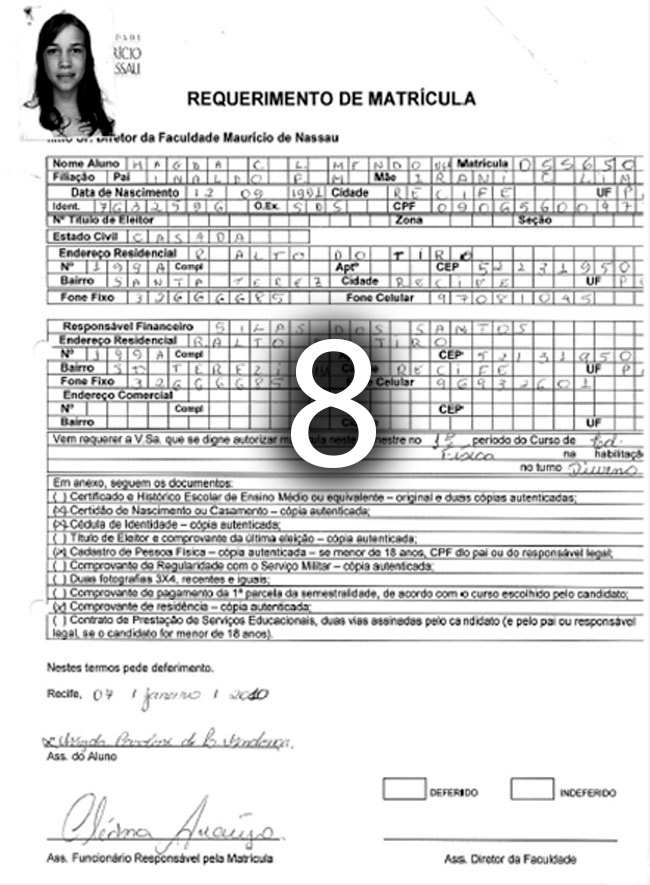 DADE
RÍCIO
SSAU
REQUERIMENTO DE MATRÍCULA
Diretor da Faculdade Maurício de Nassau
Nome Aluno MAGDA C. L. MENDO Matrícula 055650
Filiação Pai INALDO Mãe IRANI
Data de Nascimento 12 09 1991 Cidade RECIFE UF P
Ident. 7632596 O.Ex. SDS CPF 0906560097
Nº Título de Eleitor Zona Seção
Estado Civil CASADA
Endereço Residencial R ALTO DO TIRO
Nº 199A Compl Aptº CEP 52231950
Bairro SANTA TEREZ Cidade RECIFE UF P
Fone Fixo 32666685 Fone Celular 97081045
Responsável Financeiro SILAS DOS SANTOS
Endereço Residencial R ALTO TIRO
Nº 199A Compl CEP 52131950
Bairro TEREZ RECIFE UF P
Fone Fixo 32666685 Celular 96932601
Endereço Comercial
Nº Compl CEP
Bairro UF
8
Vem requerer a V.Sa. que se digne autorizar neste no 1º período do Curso de Ed.
Física na habilitaçã
no turno Diurno
Em anexo, seguem os documentos:
( ) Certificado e Histórico Escolar de Ensino Médio ou equivalente – original e duas cópias autenticadas;
(x) Certidão de Nascimento ou Casamento – cópia autenticada;
(x) Cédula de Identidade – cópia autenticada;
( ) Título de Eleitor e comprovante da última eleição – cópia autenticada;
(x) Cadastro de Pessoa Física – cópia autenticada – se menor de 18 anos, CPF do pai ou do responsável legal;
( ) Comprovante de Regularidade com o Serviço Militar – cópia autenticada;
( ) Duas fotografias 3X4, recentes e iguais;
( ) Comprovante de pagamento da 1ª parcela da semestralidade, de acordo com o curso escolhido pelo candidato;
(x) Comprovante de residência – cópia autenticada;
( ) Contrato de Prestação de Serviços Educacionais, duas vias assinadas pelo candidato (e pelo pai ou responsável
legal, se o candidato for menor de 18 anos).
Nestes termos pede deferimento.
Recife, 07 / janeiro / 2010
Ass. do Aluno
DEFERIDO INDEFERIDO
Cleóma Araújo
Ass. Funcionário Responsável pela Matrícula Ass. Diretor da Faculdade